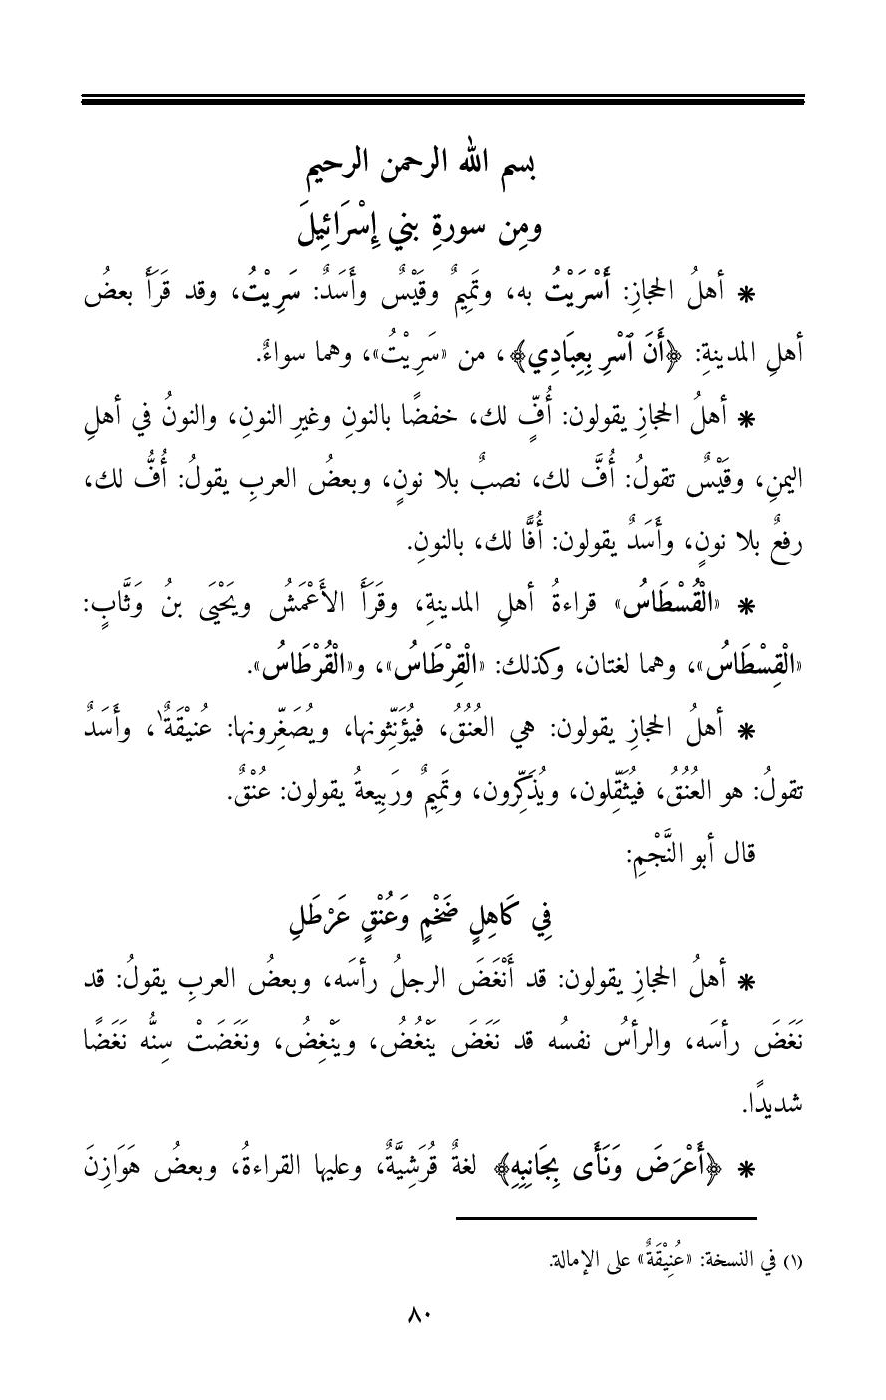 بسم الله الرحمن الرحيم
ومِن سورةِ بني إِسْرَائِيلَ
* أهلُ الحجازِ: أَسْرَيْتُ به، وتَمِيمٌ وقَيْسٌ وأَسَدٌ: سَرِيْتُ، وقد قَرَأَ بعضُ
أهلِ المدينةِ: ﴿أَنَ ٱسْرِ بِعِبَادِي﴾، من «سَرِيْتُ»، وهما سواءٌ.
* أهلُ الحجازِ يقولون: أُفٍّ لك، خفضًا بالنونِ وغيرِ النونِ، والنونُ في أهلِ
اليمنِ، وقَيْسٌ تقولُ: أُفَّ لك، نصبٌ بلا نونٍ، وبعضُ العربِ يقولُ: أُفُّ لك،
رفعٌ بلا نونٍ، وأَسَدٌ يقولون: أُفًّا لك، بالنونِ.
* «الْقُسْطَاسُ» قراءةُ أهلِ المدينةِ، وقَرَأَ الأَعْمَشُ ويَحْيَى بنُ وَثَّابٍ:
«الْقِسْطَاسُ»، وهما لغتان، وكذلك: «الْقِرْطَاسُ»، و«الْقُرْطَاسُ».
* أهلُ الحجازِ يقولون: هي العُنُقُ، فيُؤَنِّثونها، ويُصَغِّرونها: عُنيْقَةٌ١، وأَسَدٌ
تقولُ: هو العُنُقُ، فيُثَقِّلون، ويُذَكِّرون، وتَمِيمٌ ورَبِيعةُ يقولون: عُنْقٌ.
قال أبو النَّجْمِ:
فِي كَاهِلٍ ضَخْمٍ وَعُنْقٍ عَرْطَلِ
* أهلُ الحجازِ يقولون: قد أَنْغَضَ الرجلُ رأسَه، وبعضُ العربِ يقولُ: قد
نَغَضَ رأسَه، والرأسُ نفسُه قد نَغَضَ يَنْغُضُ، ويَنْغِضُ، ونَغَضَتْ سِنُّه نَغَضًا
شديدًا.
* ﴿أَعْرَضَ وَنَأَى بِجَانِبِهِ﴾ لغةٌ قُرَشِيَّةٌ، وعليها القراءةُ، وبعضُ هَوَازِنَ
(١) في النسخة: «عُنِيْقَةٌ» على الإمالة.
٨٠